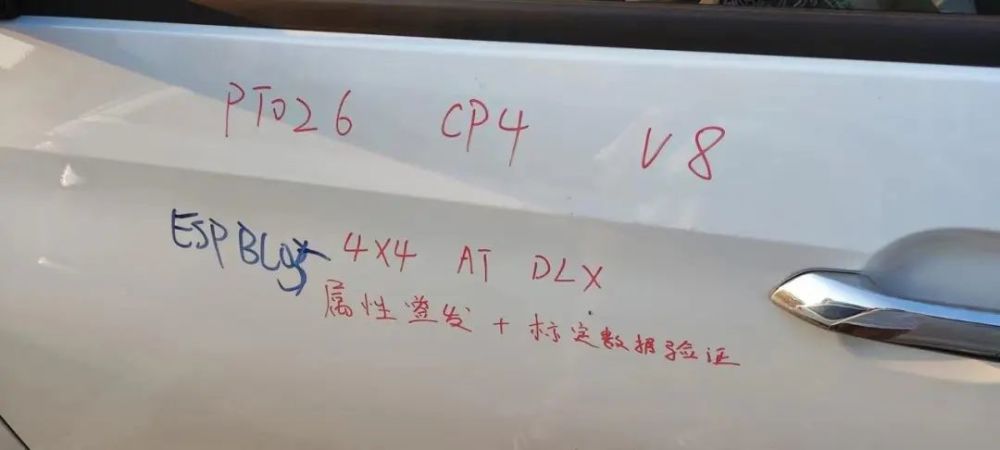 PT026 CP4 V8
ESP BL 4X4 AT DLX
属性 发 + 标定数据验证